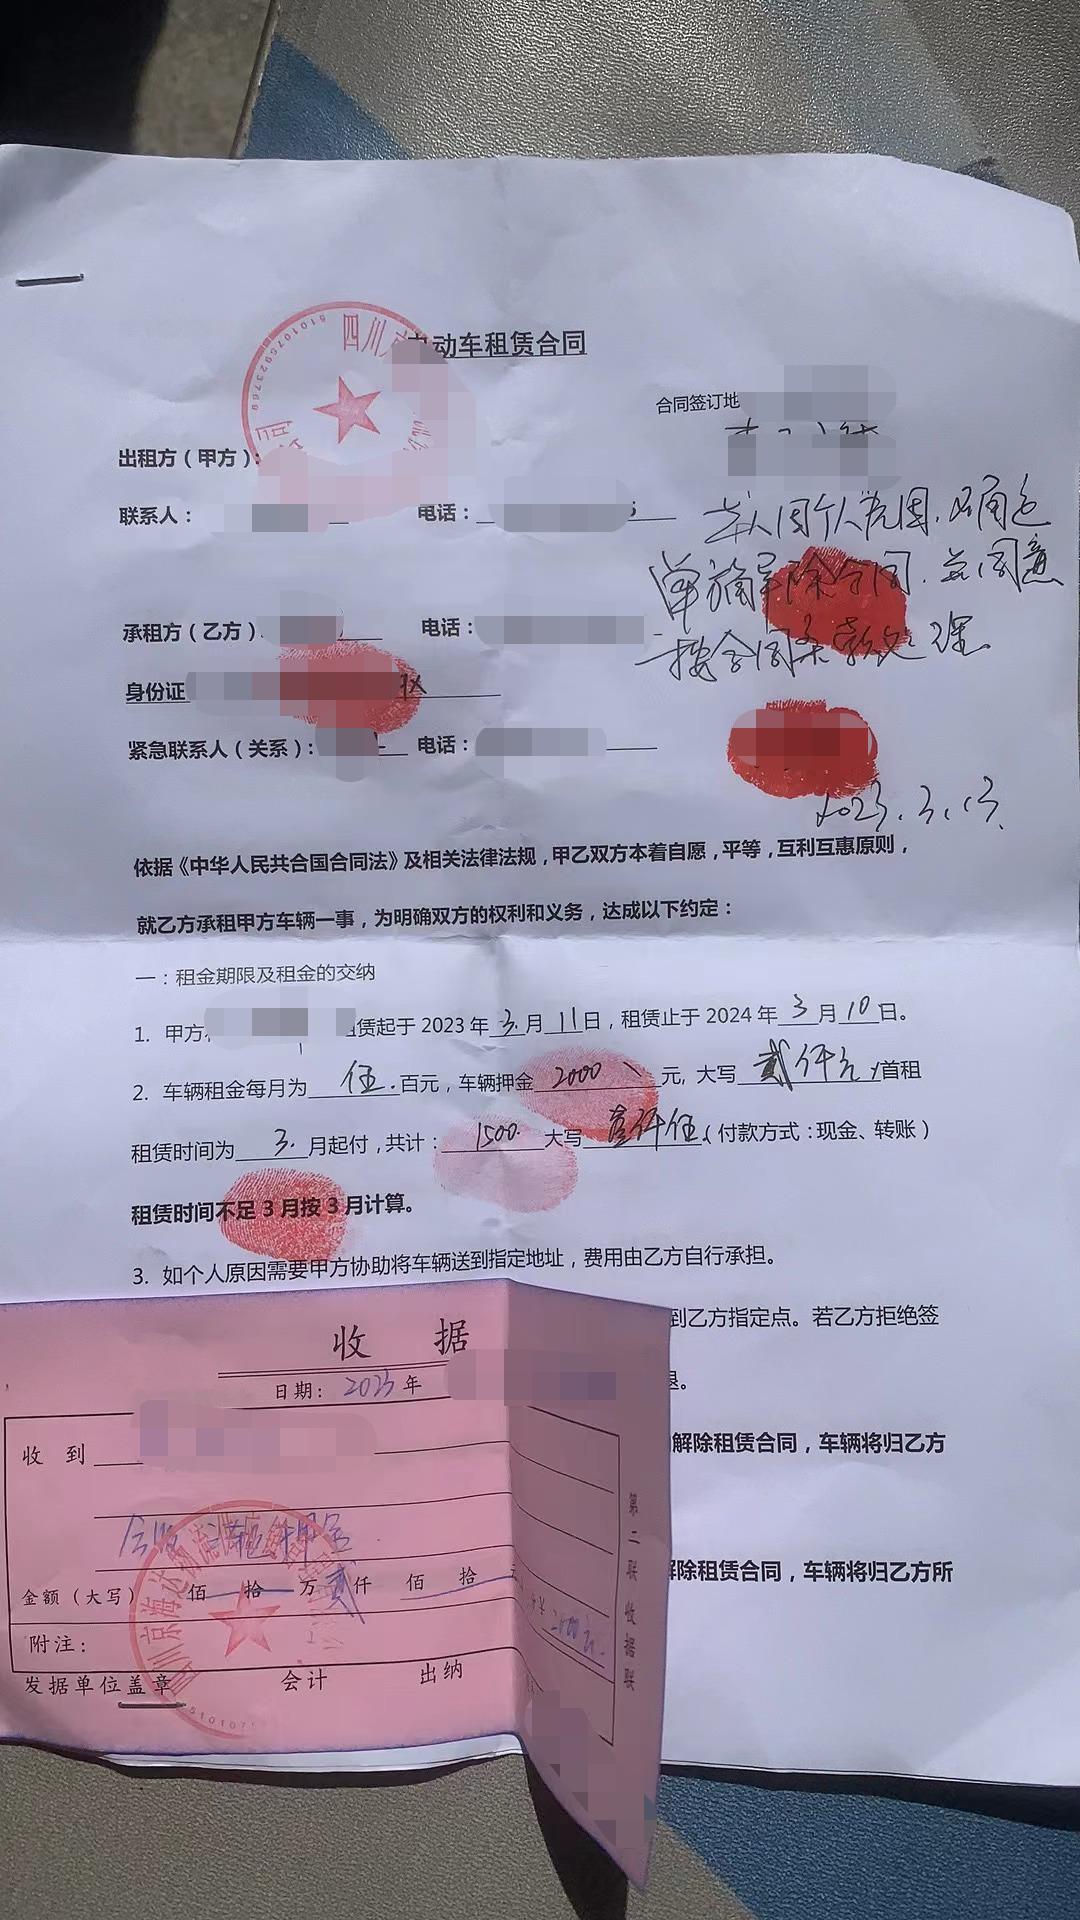 四川
5101075923769
司
电动车租赁合同
合同签订地
出租方（甲方）：
联系人：
电话：
本人因个人原因，
单方解除合同，并同意
按合同条款处理
承租方（乙方）
电话：
身份证
紧急联系人（关系）：
电话：
2023.3.13
依据《中华人民共合国合同法》及相关法律法规，甲乙双方本着自愿，平等，互利互惠原则，
就乙方承租甲方车辆一事，为明确双方的权利和义务，达成以下约定：
一：租金期限及租金的交纳
1. 甲方 租赁起于 2023 年 3 月 11 日，租赁止于 2024 年 3 月 10 日。
2. 车辆租金每月为 伍 百元，车辆押金 2000 元, 大写 贰仟元 /首租
租赁时间为 3 月起付，共计： 1500 大写 壹仟伍 （付款方式：现金、转账）
租赁时间不足 3 月按 3 月计算。
3. 如个人原因需要甲方协助将车辆送到指定地址，费用由乙方自行承担。
到乙方指定点。若乙方拒绝签
退。
解除租赁合同，车辆将归乙方
解除租赁合同，车辆将归乙方所
收 据
日期： 2023 年
收 到
押金
金额（大写） 佰 拾 万 贰 仟 佰 拾 元
附注：
发据单位盖章 会计 出纳
第二联 收据联
四川京海达物流
510107